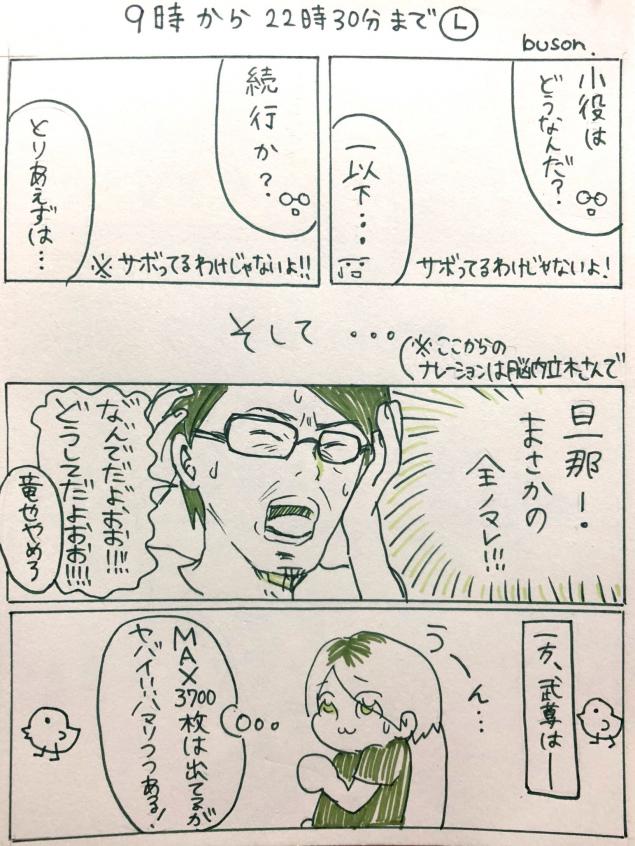 9時から22時30分までⓁ
buson.
小役は
どうなんだ?
一以下...
サボってるわけじゃないよ!
続行か?
とりあえずは...
※サボってるわけじゃないよ!!
そして...
(※ここからの
ナレーションは脳内立木さんで
旦那!
まさかの
全ノマレ!!!
なんでだよおお!!!!
どうしてだよおお!!!!
竜也やめろ
一方、武尊は—
うーん...
MAX
3700
枚は出てるが
ヤバイ!!!ハマりつつある!